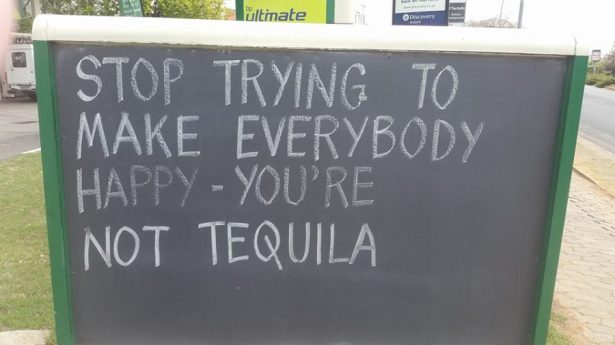 bp
ultimate
Discovery
STOP TRYING TO
MAKE EVERYBODY
HAPPY - YOU'RE
NOT TEQUILA